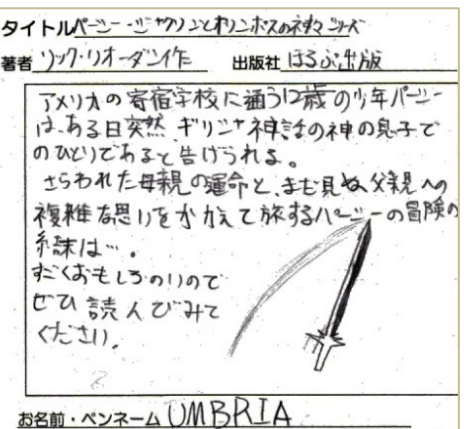 タイトル パーシー・ジャクソンとオリンポスの神々シリーズ
著者 リック・リオーダン作 出版社 ほるぷ出版
アメリカの寄宿学校に通う12歳の少年パーシー
は、ある日突然、ギリシャ神話の神の息子で
のひとりであると告げられる。
さらわれた母親の運命と、まだ見ぬ父親への
複雑な思いをかかえて旅するパーシーの冒険の
結末は…。
すごくおもしろいので
ぜひ読んでみて
ください。
お名前・ペンネーム UMBRIA